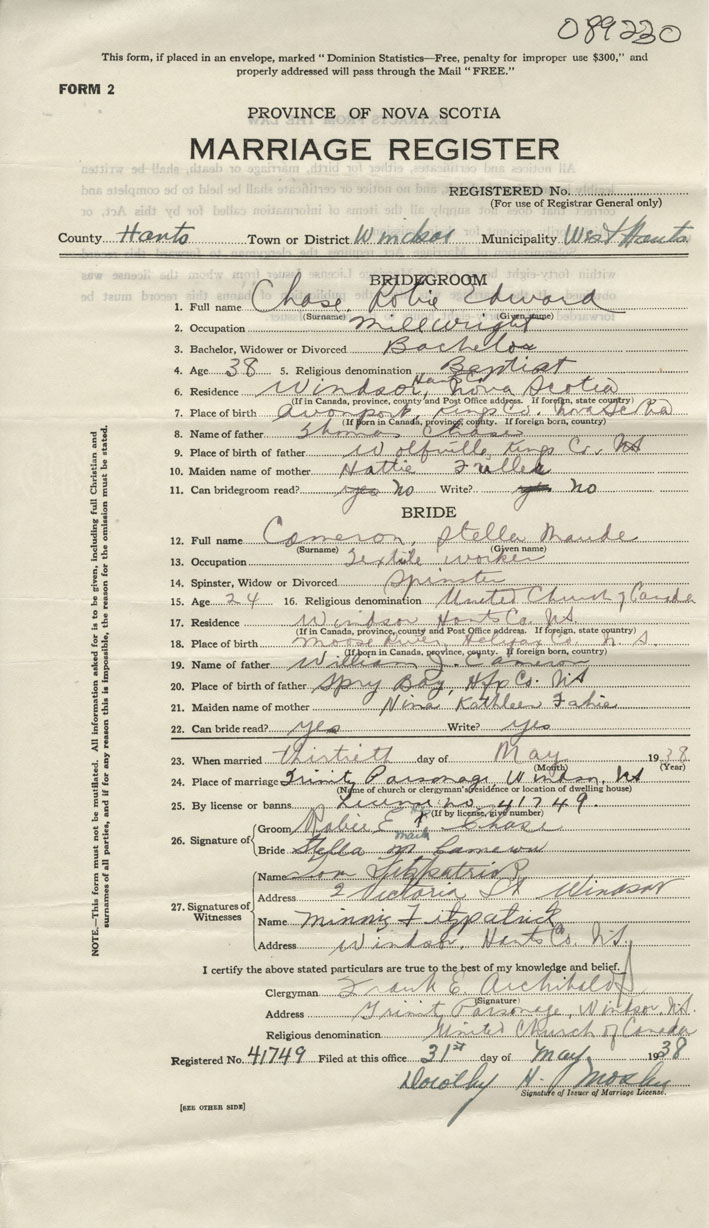 089230
This form, if placed in an envelope, marked "Dominion Statistics—Free, penalty for improper use $300," and
properly addressed will pass through the Mail "FREE."
FORM 2
PROVINCE OF NOVA SCOTIA
MARRIAGE REGISTER
REGISTERED No.
(For use of Registrar General only)
County Hants Town or District Windsor Municipality West Hants
BRIDEGROOM
1. Full name Chase, Robie Edward
(Surname) (Given name)
2. Occupation Millwright
3. Bachelor, Widower or Divorced Bachelor
4. Age 38 5. Religious denomination Baptist
6. Residence Windsor, Hants Co. Nova Scotia
(If in Canada, province, county and Post Office address. If foreign, state country)
7. Place of birth Avonport, Kings Co. Nova Scotia
(If born in Canada, province, county. If foreign born, country)
8. Name of father Thomas Chase
9. Place of birth of father Wolfville Kings Co. NS
10. Maiden name of mother Hattie Fuller
11. Can bridegroom read? yes no Write? yes no
BRIDE
12. Full name Cameron, Stella Maude
(Surname) (Given name)
13. Occupation Textile worker
14. Spinster, Widow or Divorced Spinster
15. Age 24 16. Religious denomination United Church of Canada
17. Residence Windsor Hants Co. N.S.
(If in Canada, province, county and Post Office address. If foreign, state country)
18. Place of birth Moose River, Halifax Co. N. S.
(If born in Canada, province, county. If foreign born, country)
19. Name of father William J. Cameron
20. Place of birth of father Spry Bay, Hfx Co. NS
21. Maiden name of mother Nina Kathleen Fahie
22. Can bride read? yes Write? yes
23. When married thirtieth day of May 1938
(Month) (Year)
24. Place of marriage Trinity Parsonage, Windsor, NS
(Name of church or clergyman's residence or location of dwelling house)
25. By license or banns License no. 41749.
(If by license, give number)
26. Signature of
Groom Robie E. his X mark Chase
Bride Stella M Cameron
27. Signatures of Witnesses
Name Fitzpatrick
Address 2 Victoria St Windsor
Name Minnie Fitzpatrick
Address Windsor, Hants Co. N.S.
I certify the above stated particulars are true to the best of my knowledge and belief.
Clergyman Frank E. Archibald
(Signature)
Address Trinity Parsonage, Windsor, N.S.
Religious denomination United Church of Canada
Registered No. 41749 Filed at this office 31st day of May 1938
Dorothy H. Mosher
Signature of Issuer of Marriage License.
[SEE OTHER SIDE]
NOTE.—This form must not be mutilated. All information asked for is to be given, including full Christian and
surnames of all parties, and if for any reason this is impossible, the reason for the omission must be stated.